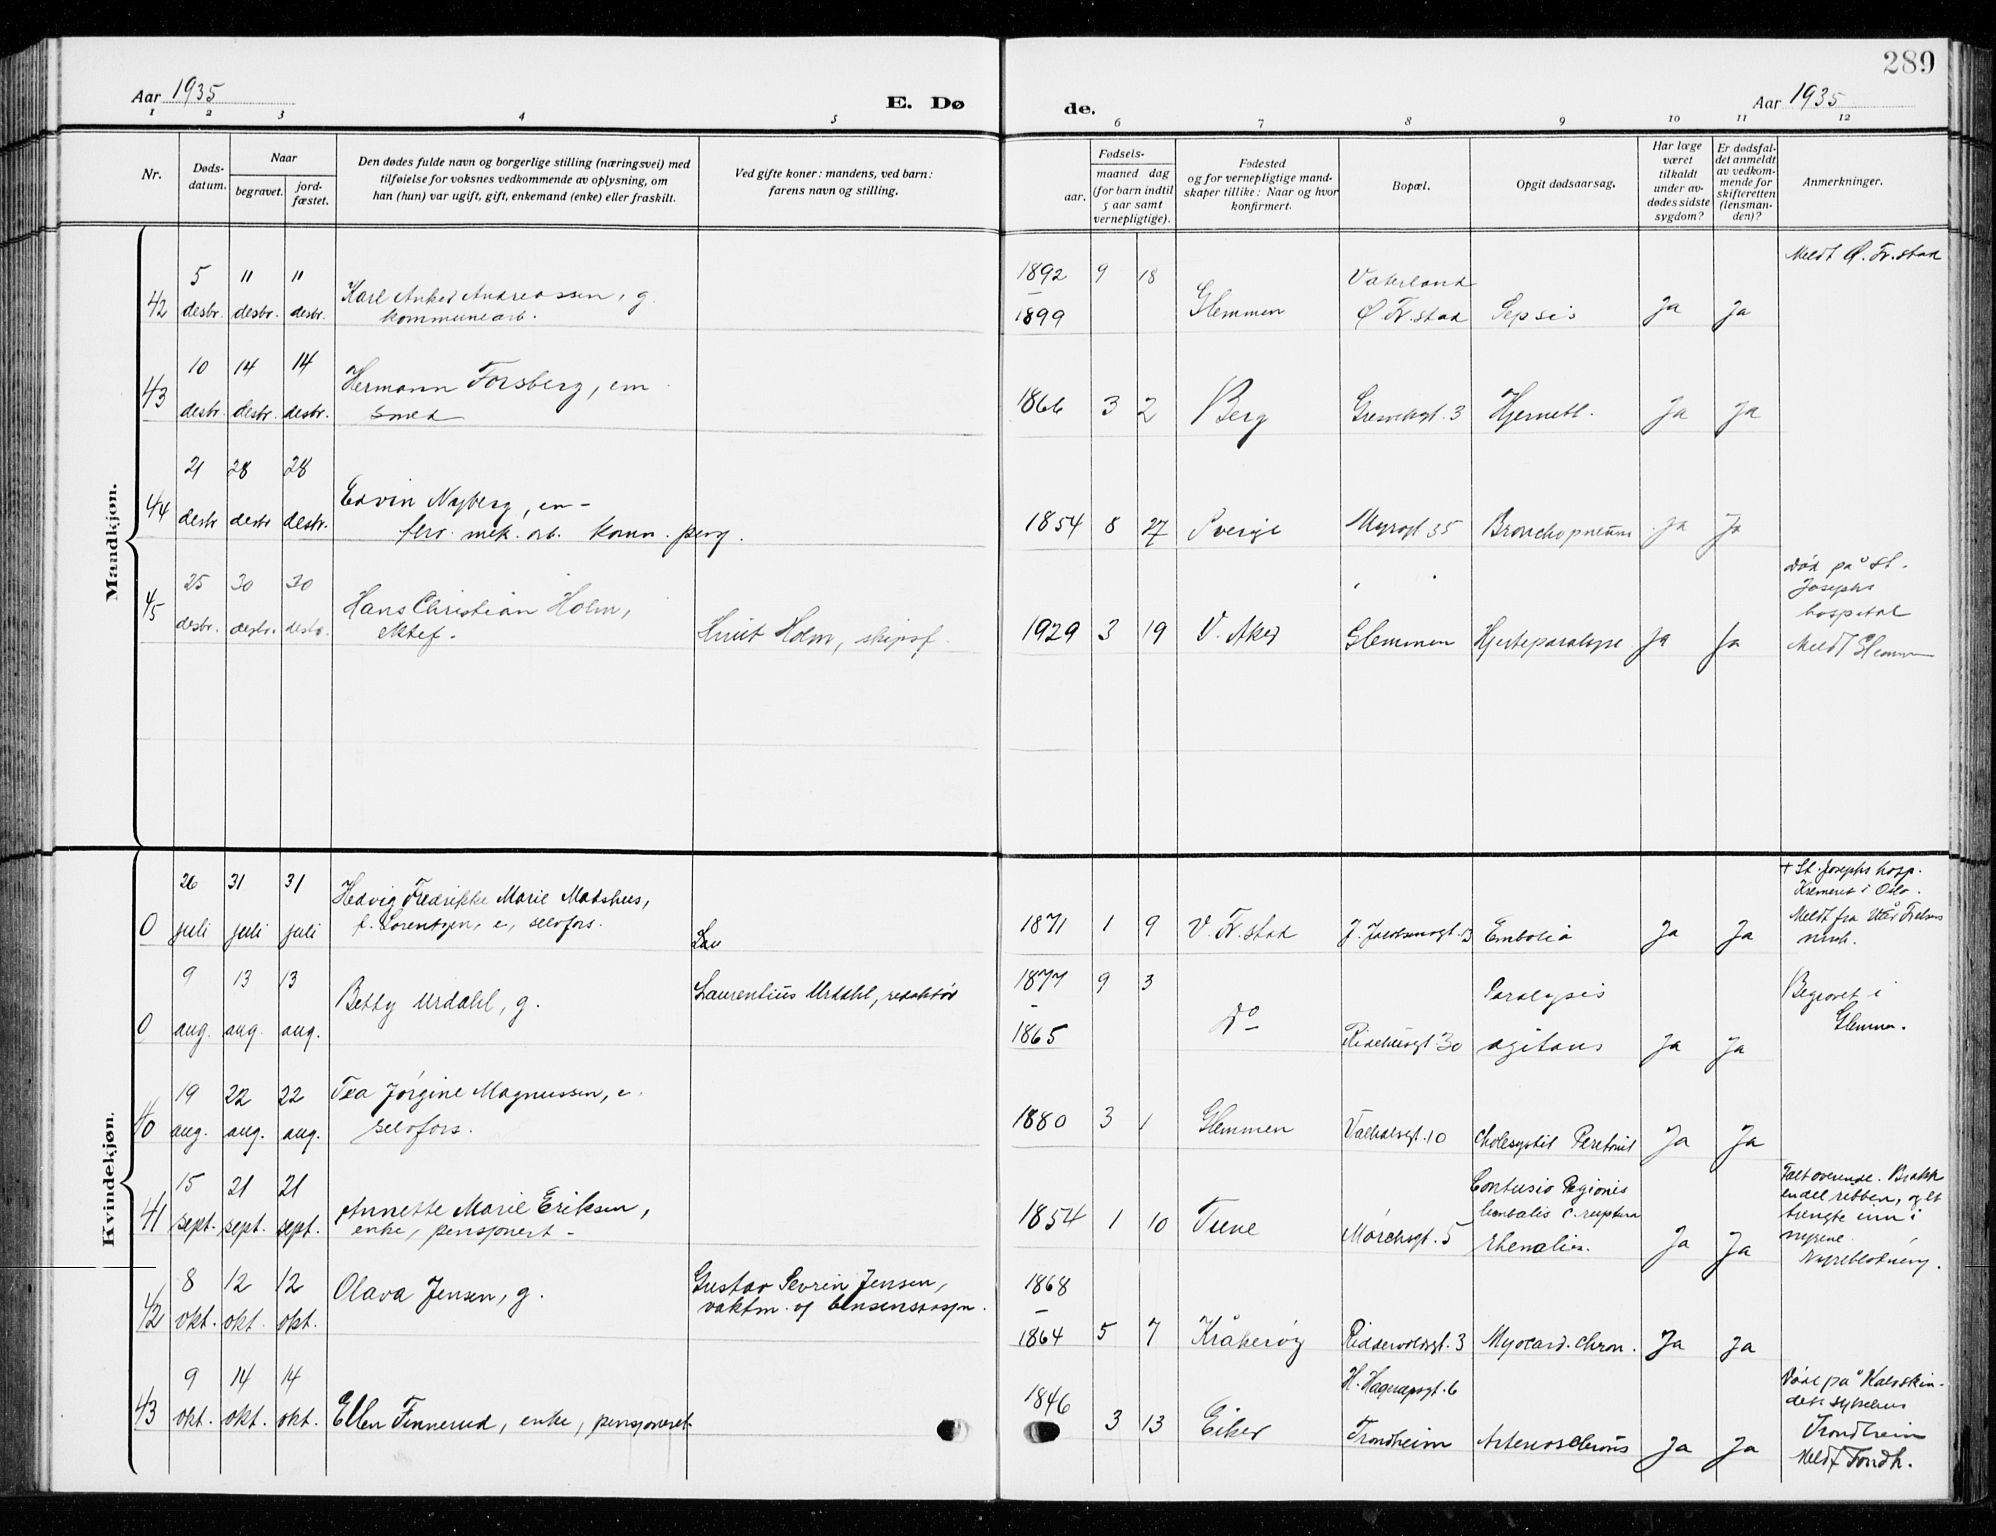 289
Aar 1935
E. Dø
de.
Aar 1935
1 2 3 4 5 6 7 8 9 10 11 12
Nr.
Døds-
datum.
Naar
begravet.
jord-
fæstet.
Den dødes fulde navn og borgerlige stilling (næringsvei) med
tilføielse for voksnes vedkommende av oplysning, om
han (hun) var ugift, gift, enkemand (enke) eller fraskilt.
Ved gifte koner: mandens, ved barn:
farens navn og stilling.
Fødsels-
aar.
maaned dag
(for barn indtil
5 aar samt
vernepligtige).
Fødested
og for vernepligtige mand-
skaper tillike: Naar og hvor
konfirmert.
Bopæl.
Opgit dødsaarsag.
Har læge
været
tilkaldt
under av-
dødes sidste
sygdom?
Er dødsfal-
det anmeldt
av vedkom-
mende for
skifteretten
(lensman-
den)?
Anmerkninger.
Mandkjøn.
5 " " 1892 9 18 Vaterland Meldt Ø. Fr.stad
42 desbr. desbr. desbr. Karl Anker Andreassen, g.
kommunearb. 1899 Glemmen Ø Fr.stad Sepsis Ja Ja
10 14 14
43 desbr. desbr. desbr. Hermann Forsberg, em
smed 1866 3 2 Berg Gresviksgt. 3 Hjernebl. Ja Ja
21 28 28
44 desbr desbr desbr. Edvin Nyberg, em-
fhv. mek. arb. komm. pens. 1854 8 27 Sverige Myragt 35 Bronchopneum Ja Ja
25 30 30 Død på St.
Josephs
hospital
45 desbr. desbr. desbr. Hans Christian Holm,
ektef. Knut Holm, skipsf. 1929 3 19 V. Aker Glemmen Hjerteparalyse Ja Ja Meldt Glemmen
Kvindekjøn.
26 31 31 Hedvig Fredrikke Marie Madshus, + St. Josephs hosp.
Kremert i Oslo.
0 juli juli juli f. Lorentzen, e, selvfors. Lau 1871 1 9 V. Fr.stad J. Jacobsensgt. 13 Emboli Ja Ja Meldt fra
9 13 13 Laurentius Urdahl, redaktør 1877 9 3 Paralysis Begravet i
0 aug. aug. aug. Betty Urdahl, g. 1865 Do Ridehusgt 30 agitans Ja Ja Glemmen.
19 22 22 Tea Jørgine Magnussen, e.
40 aug. aug. aug. selvfors. 1880 3 1 Glemmen Valhalsgt. 10 Cholesystit Peritonit Ja Ja
15 21 21 Contusio Regionis Falt overende. Brakk
endel ribben, og et
41 sept. sept. sept. Annette Marie Eriksen,
enke, pensjonert - 1854 1 10 Tune Mørchsgt. 5 lumbalis c. ruptura
Rhenalis. Ja Ja trengte inn i
nyrene.
Nyreblødning.
8 12 12 Gustav Sevrin Jensen, 1868
42 okt. okt. okt. Olava Jensen, g. vaktm. og bensenstasjn. 1864 5 7 Kråkerøy Riddervoldsgt. 3 Myocard. chron. Ja Ja
9 14 14 1846 H. Hagerupsgt. 6 Død på Kalvskin-
dets sykehus
43 okt. okt. okt. Ellen Finnerud, enke, pensjoneret 3 13 Eiker Trondheim Arteriosclerosis Ja Ja Trondheim
Meldt Trondh.